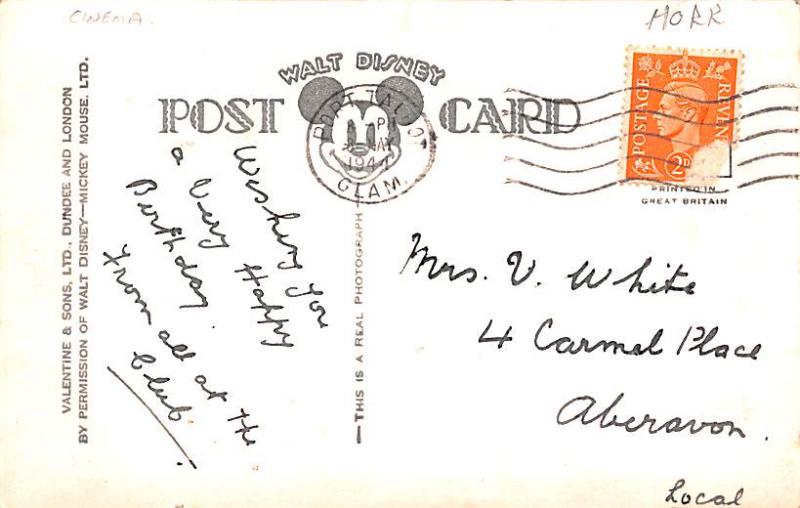 CINEMA.
HORR
WALT DISNEY
POST CARD
PORT TALBOT
1944
GLAM.
POSTAGE
REVEN
2D
PRINTED IN
GREAT BRITAIN
VALENTINE & SONS, LTD., DUNDEE AND LONDON
BY PERMISSION OF WALT DISNEY—MICKEY MOUSE, LTD.
Wishing you
a Very Happy
Birthday.
From all at the
Club.
—THIS IS A REAL PHOTOGRAPH
Mrs. V. White
4 Carmel Place
Aberavon.
Local